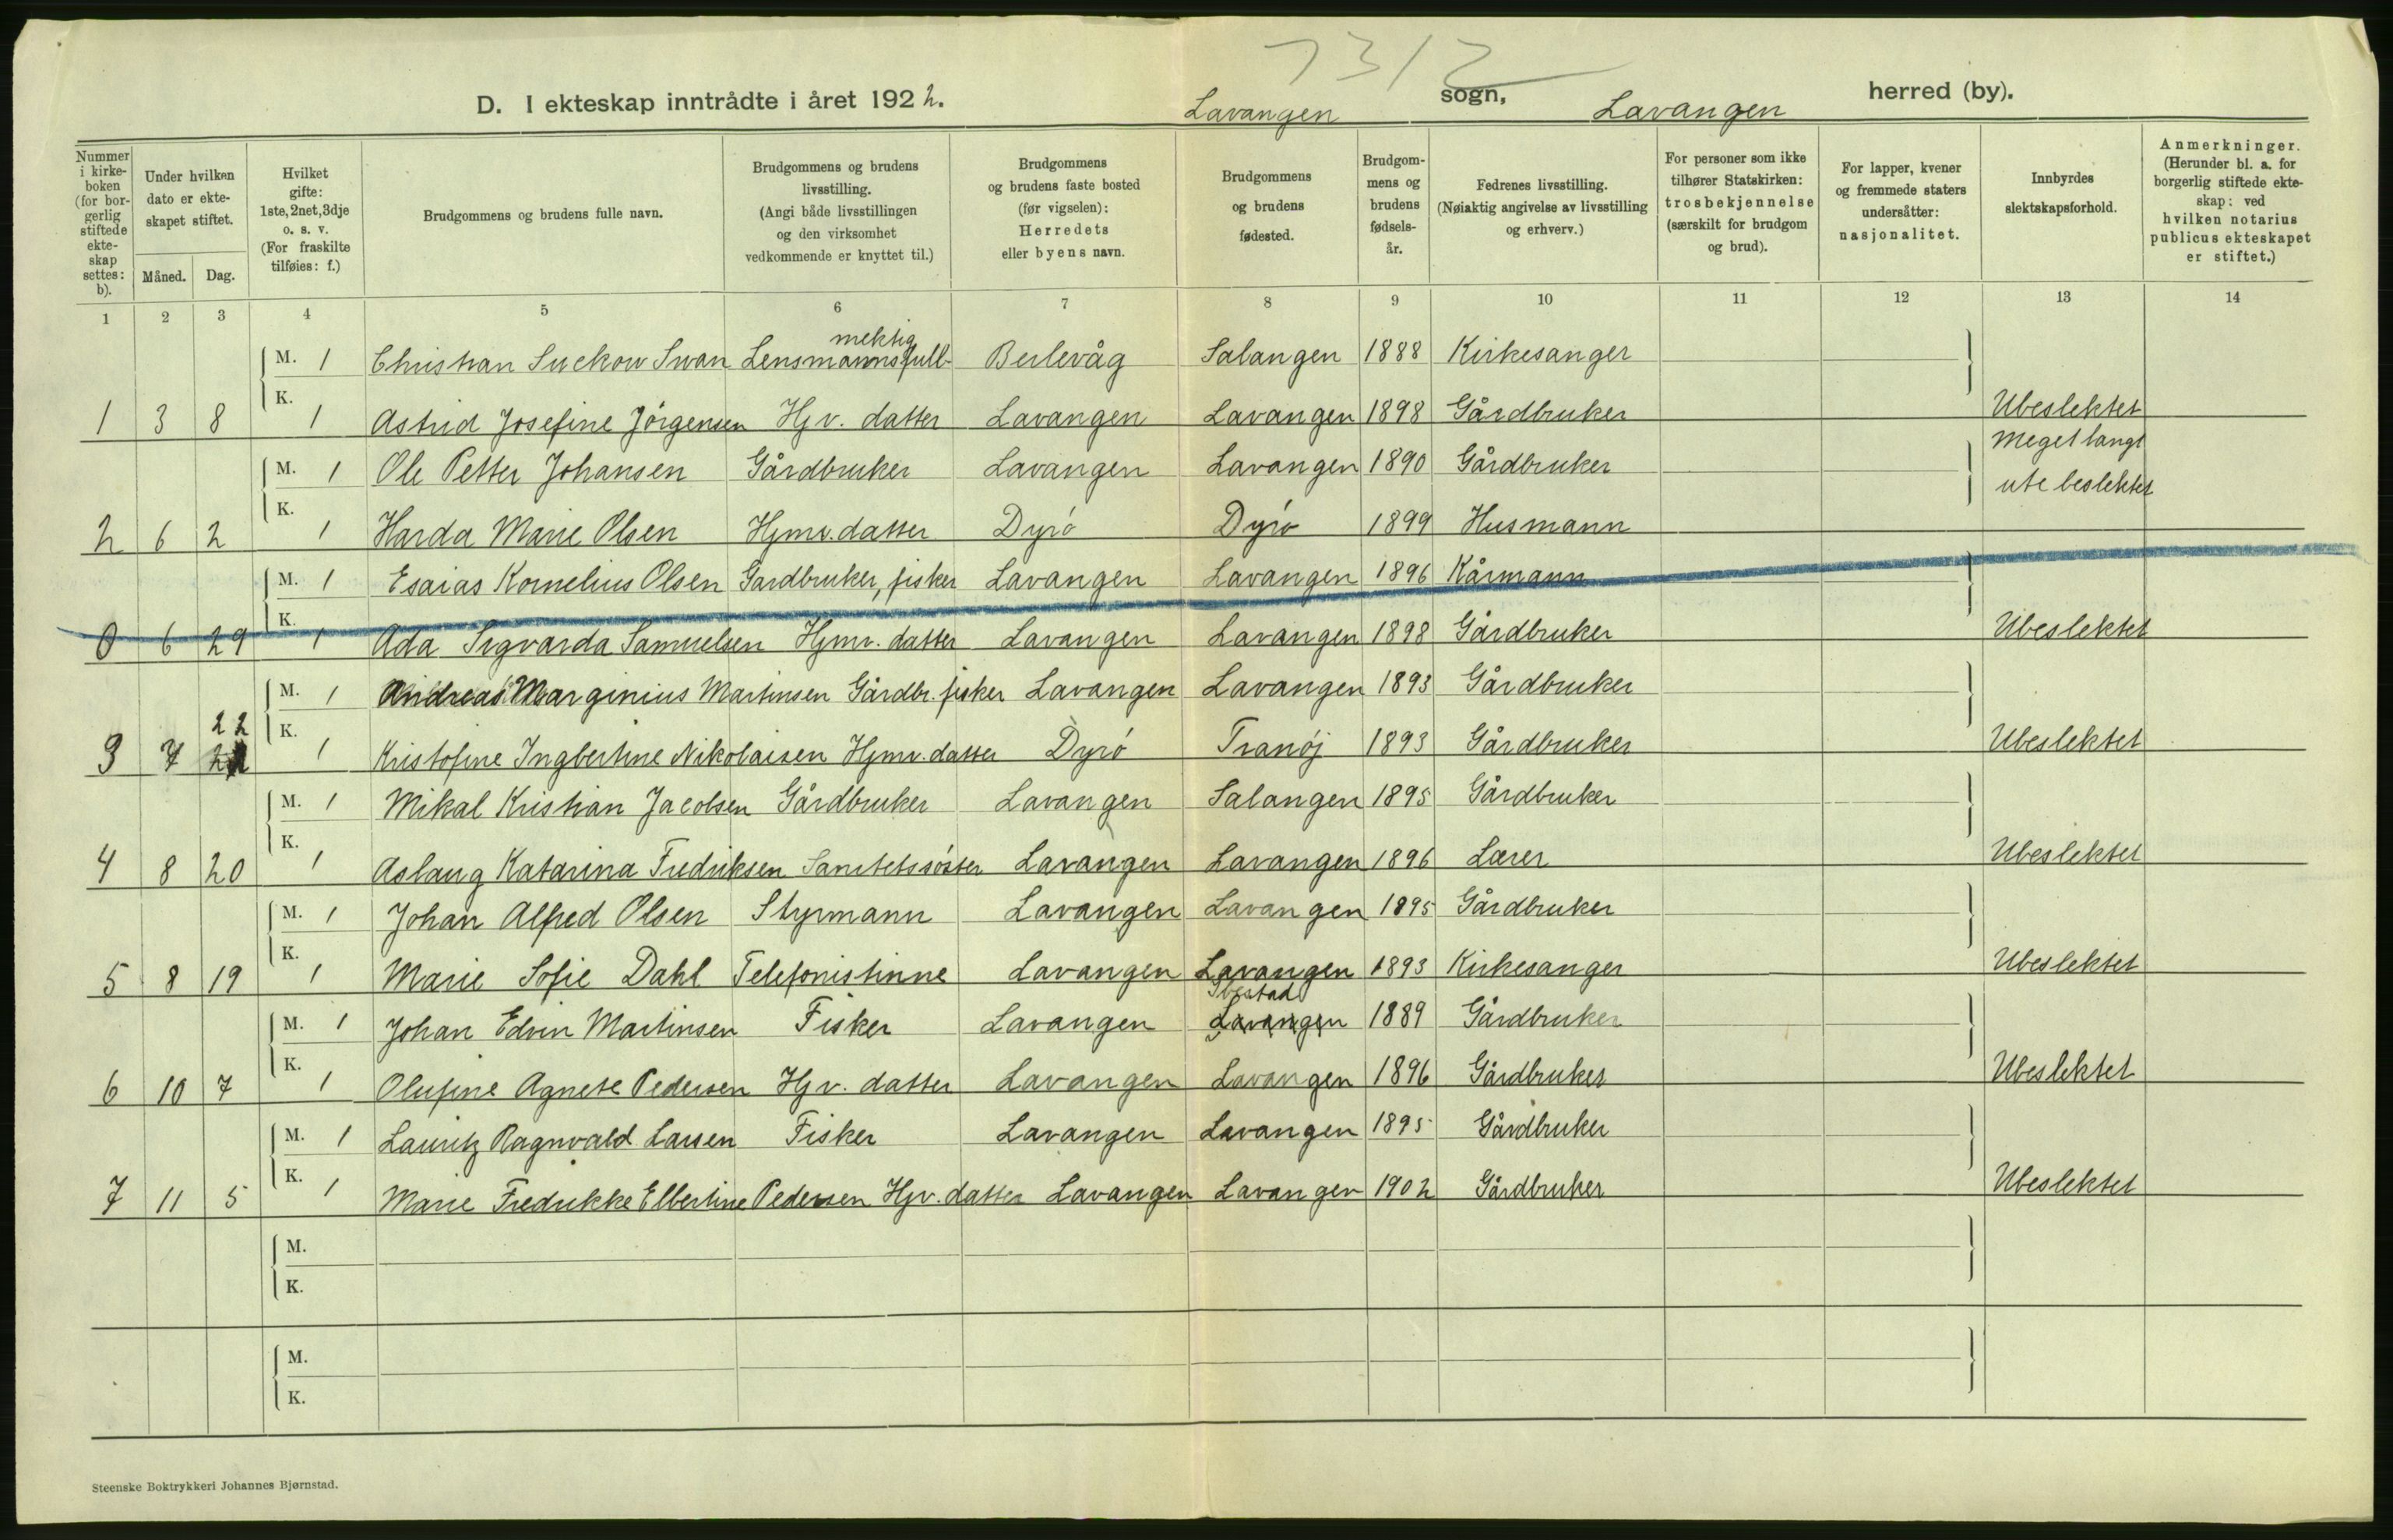 7312
D. I ekteskap inntrådte i året 1922.
Lavangen sogn, Lavangen herred (by).
Nummer i kirke-boken (for bor-gerlig stiftede ekte-skap settes: b).
Under hvilken dato er ekte-skapet stiftet.
Måned. Dag.
Hvilket gifte: 1ste, 2net, 3dje o. s. v. (For fraskilte tilføies: f.)
Brudgommens og brudens fulle navn.
Brudgommens og brudens livsstilling. (Angi både livsstillingen og den virksomhet vedkommende er knyttet til.)
Brudgommens og brudens faste bosted (før vigselen): Herredets eller byens navn.
Brudgommens og brudens fødested.
Brudgom-mens og brudens fødsels-år.
Fedrenes livsstilling. (Nøiaktig angivelse av livsstilling og erhverv.)
For personer som ikke tilhører Statskirken: trosbekjennelse (særskilt for brudgom og brud).
For lapper, kvener og fremmede staters undersåtter: nasjonalitet.
Innbyrdes slektskapsforhold.
Anmerkninger. (Herunder bl. a. for borgerlig stiftede ekte-skap: ved hvilken notarius publicus ekteskapet er stiftet.)
1 2 3 4 5 6 7 8 9 10 11 12 13 14
mektig
M. 1 Christian Suckow Swan Lensmannsfull- Berlevåg Salangen 1888 Kirkesanger
1 3 8 K. 1 Astrid Josefine Jörgensen Hjv. datter Lavangen Lavangen 1898 Gårdbruker Ubeslektet
M. 1 Ole Petter Johansen Gårdbruker Lavangen Lavangen 1890 Gårdbruker Meget langt
ute beslektet
2 6 2 K. 1 Harda Marie Olsen Hjmv. datter Dyrö Dyrö 1899 Husmann
M. 1 Esaias Kornelius Olsen Gardbruker, fisker Lavangen Lavangen 1896 Kårmann
0 6 29 K. 1 Ada Sigvarda Samuelsen Hjmv. datter Lavangen Lavangen 1898 Gårdbruker Ubeslektet
M. 1 Andreas Marginius Martinsen Gårdbr. fisker Lavangen Lavangen 1893 Gårdbruker
22
3 7 K. 1 Kristofine Ingbertine Nikolaisen Hjmv. datter Dyrö Tranöj 1893 Gårdbruker Ubeslektet
M. 1 Mikal Kristian Jacobsen Gårdbruker Lavangen Salangen 1895 Gårdbruker
4 8 20 K. 1 Aslaug Katarina Fredriksen Sanitetssöster Lavangen Lavangen 1896 Lærer Ubeslektet
M. 1 Johan Alfred Olsen Styrmann Lavangen Lavangen 1895 Gårdbruker
5 8 19 K. 1 Marie Sofie Dahl Telefonistinne Lavangen Lavangen 1893 Kirkesanger Ubeslektet
Ibestad
M. 1 Johan Edvin Martinsen Fisker Lavangen Lavangen 1889 Gårdbruker
6 10 7 K. 1 Olufine Agnete Pedersen Hjv. datter Lavangen Lavangen 1896 Gårdbruker Ubeslektet
M. 1 Lauritz Ragnvald Larsen Fisker Lavangen Lavangen 1895 Gårdbruker
7 11 5 K. 1 Marie Fredrikke Elbertine Pedersen Hjv. datter Lavangen Lavangen 1902 Gårdbruker Ubeslektet
M.
K.
M.
K.
Steenske Boktrykkeri Johannes Bjørnstad.